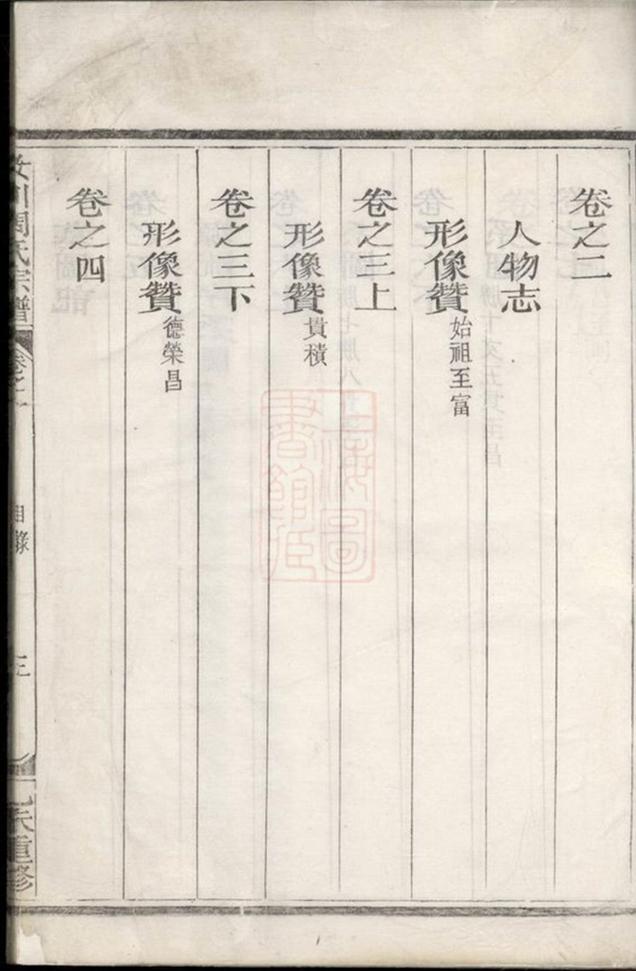 卷之二
人物志
形像贊始祖至富
卷之三上
形像贊貴積
卷之三下
形像贊德榮昌
卷之四
川周氏宗譜
卷之
目錄
三
重修
上海圖書館藏